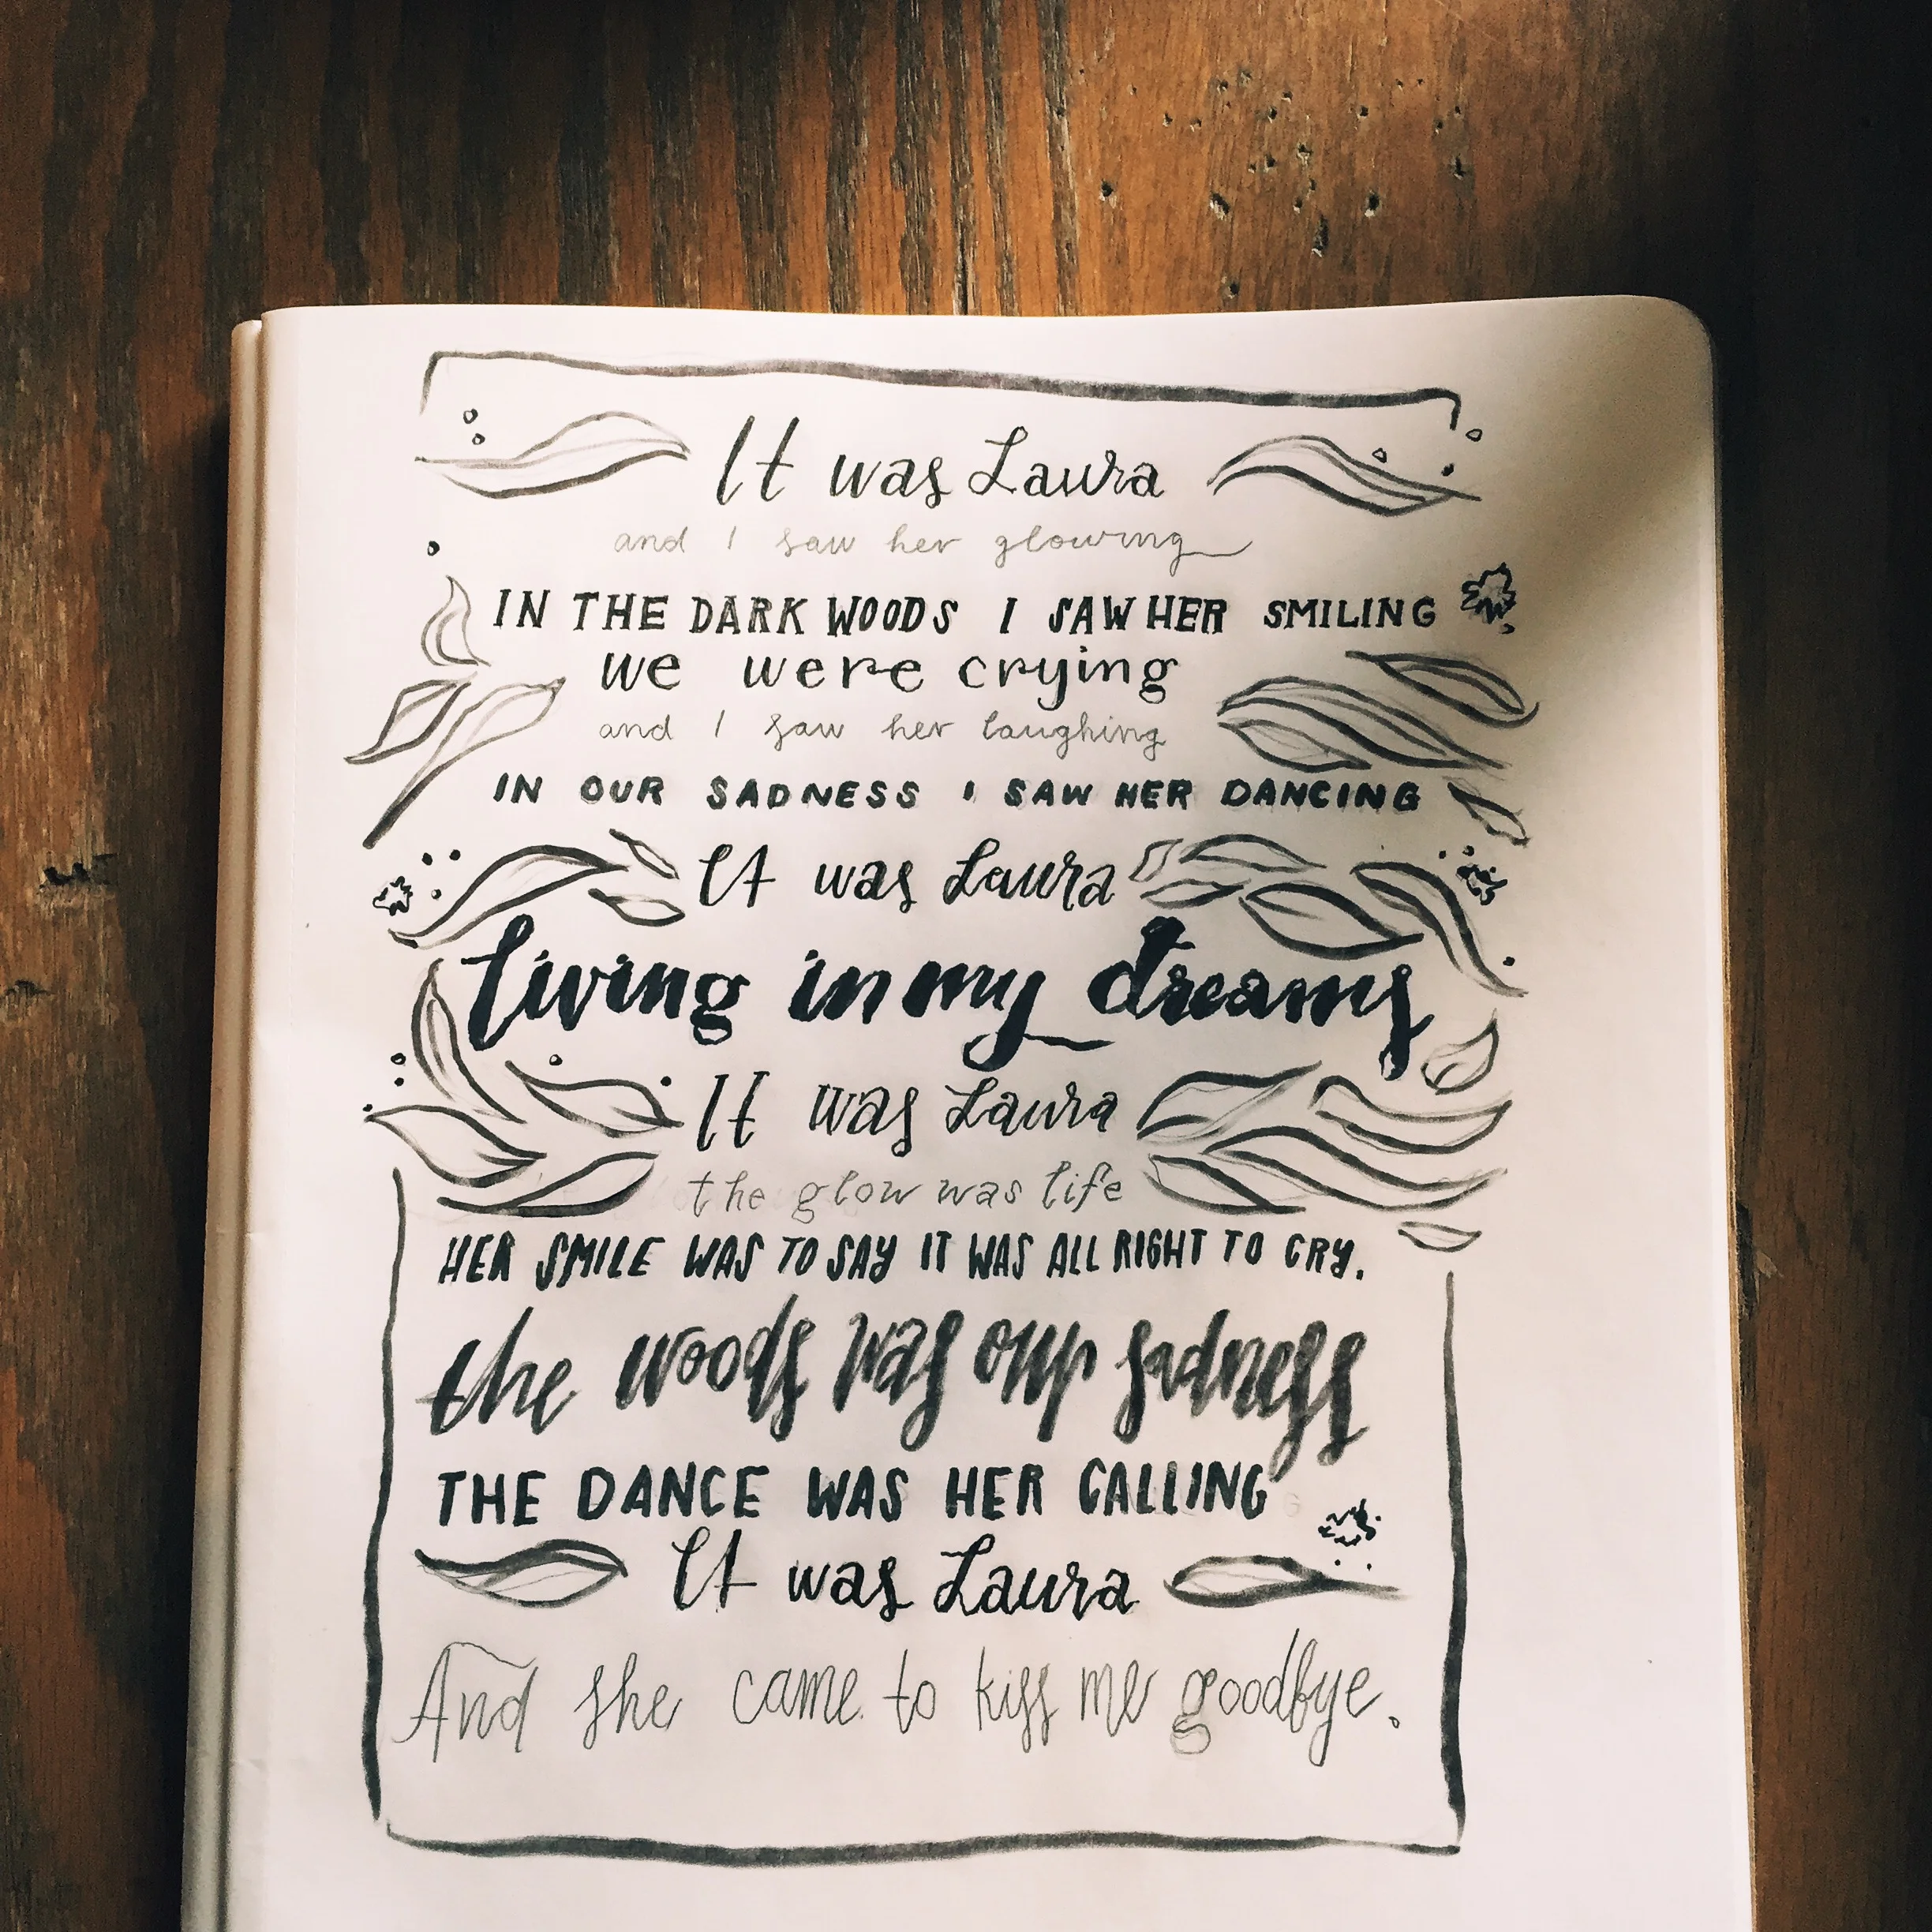 It was Laura
and I saw her glowing
IN THE DARK WOODS I SAW HER SMILING
we were crying
and I saw her laughing
IN OUR SADNESS I SAW HER DANCING
It was Laura
living in my dreams
It was Laura
the glow was life
HER SMILE WAS TO SAY IT WAS ALL RIGHT TO CRY.
the woods was our sadness
THE DANCE WAS HER CALLING
It was Laura
And she came to kiss me goodbye.